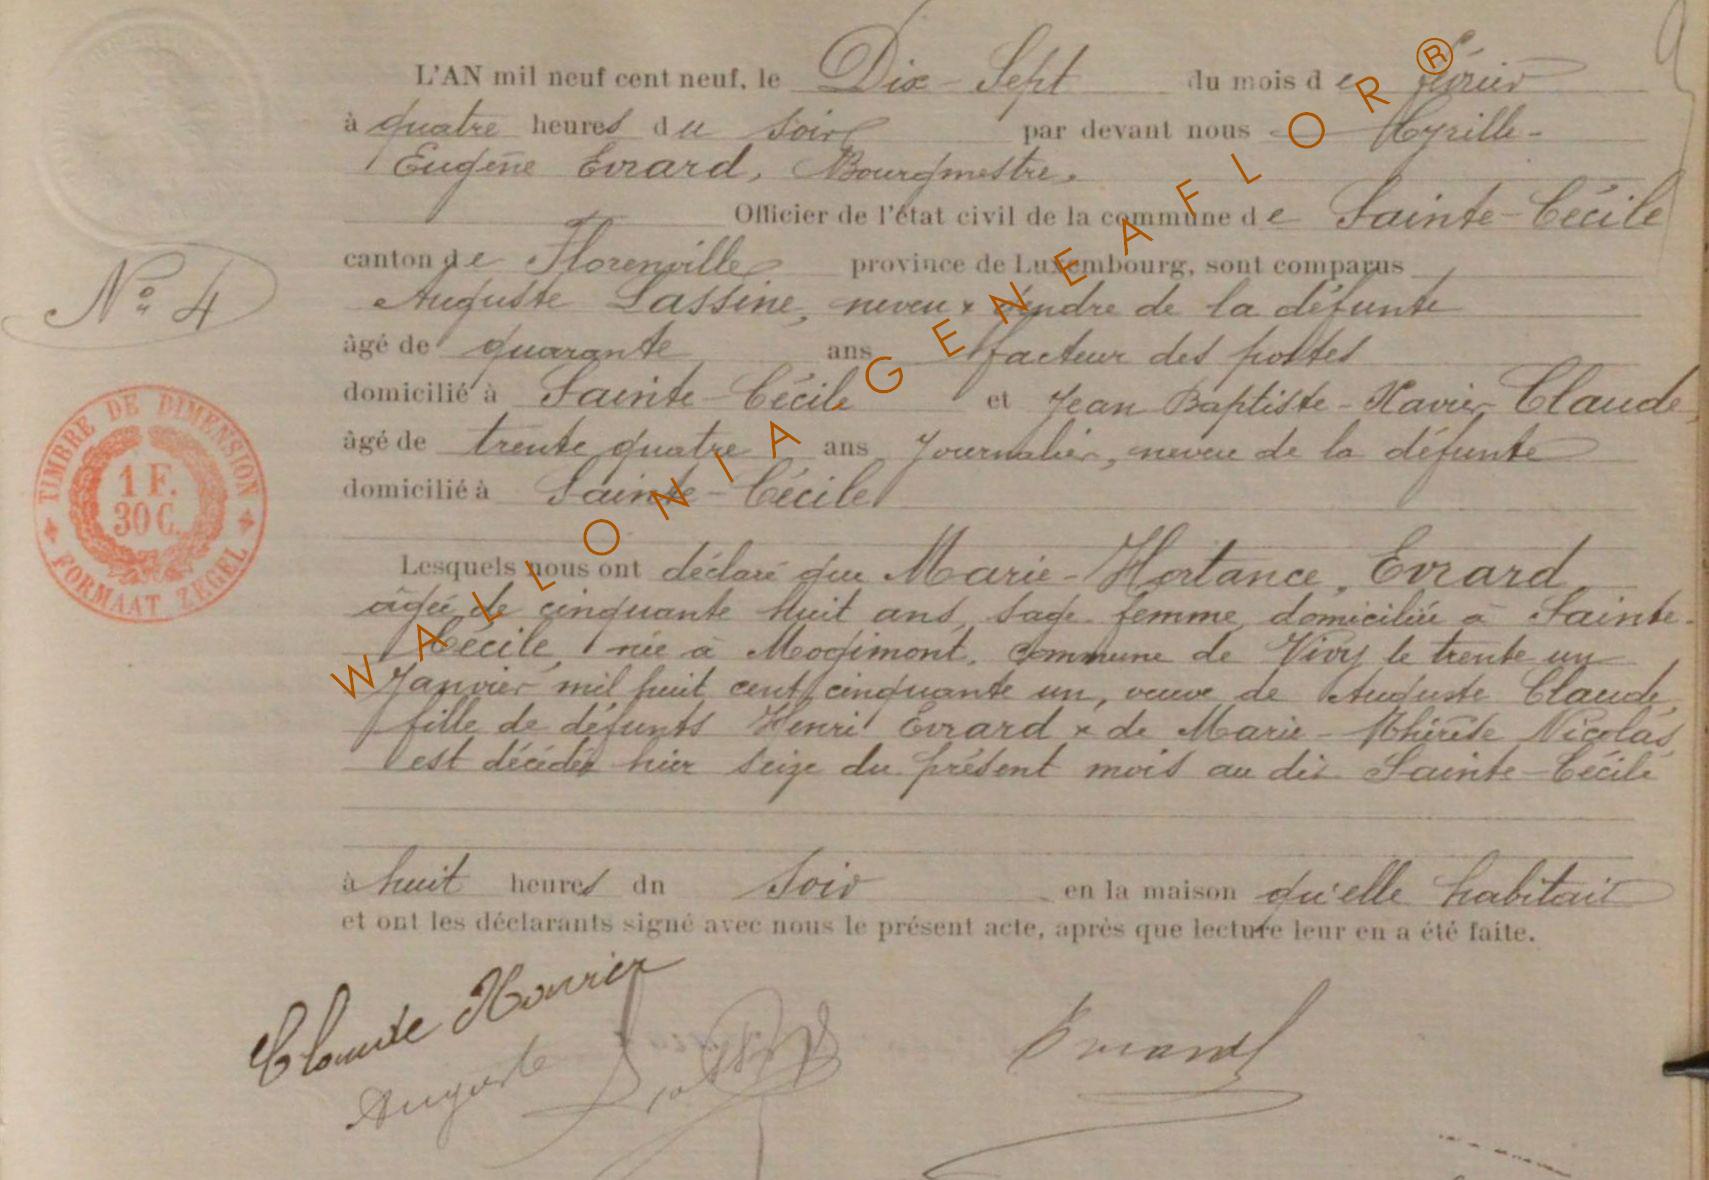 L'AN mil neuf cent neuf, le Dix-Sept du mois de février
à quatre heures du soir par devant nous Cyrille-
Eugène Evrard, Bourgmestre.
Officier de l'état civil de la commune de Sainte-Cécile
canton de Florenville province de Luxembourg, sont comparus
Auguste Lassine, neveu & gendre de la défunte
âgé de quarante ans facteur des postes
domicilié à Sainte-Cécile et Jean Baptiste-Xavier Claude,
âgé de trente quatre ans Journalier, neveu de la défunte
domicilié à Sainte-Cécile
Lesquels nous ont déclaré que Marie-Hortance, Evrard,
âgée de cinquante huit ans, sage-femme, domiciliée à Sainte-
Cécile, née à Mogimont, commune de Vivy le trente un
Janvier mil huit cent cinquante un, veuve de Auguste Claude,
fille de défunts Henri Evrard & de Marie-Thérèse Nicolas,
est décédée hier seize du présent mois au dit Sainte-Cécile
à huit heures dn soir en la maison qu'elle habitait
et ont les déclarants signé avec nous le présent acte, après que lecture leur en a été faite.
Claude Xavier
Auguste
Evrard
N° 4
TIMBRE DE DIMENSION
1 F.
30 C.
FORMAAT ZEGEL
WALLONIA GENEAFLOR ®